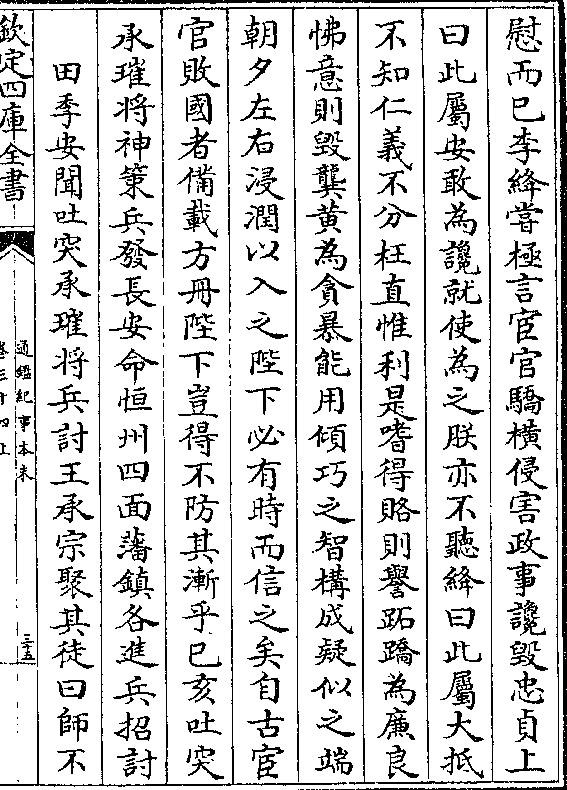 慰而已李絳嘗極言宦官驕横侵害政事讒毁忠貞上
曰此屬安敢為讒就使為之朕亦不聽絳曰此屬大抵
不知仁義不分枉直惟利是嗜得賂則譽跖蹻為廉良
怫意則毁龔黄為貪暴能用傾巧之智構成疑似之端
朝夕左右浸潤以入之陛下必有時而信之矣自古宦
官敗國者備載方冊陛下豈得不防其漸乎已亥吐突
承璀將神策兵發長安命恒州四面藩鎮各進兵招討
田季安聞吐突承璀將兵討王承宗聚其徒曰師不
欽定四庫全書
通鑑紀事本末
卷三十四上
三十五